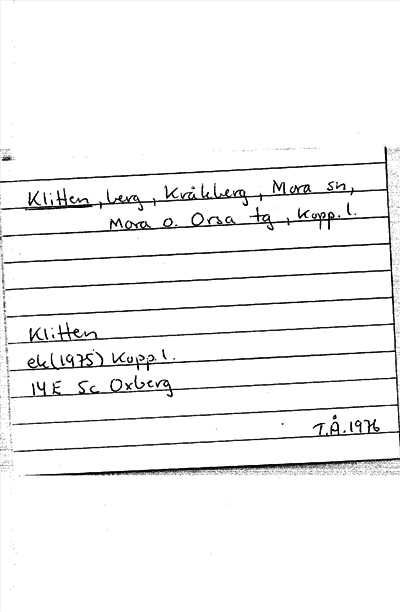 Klitten, berg, Kråkberg, Mora sn,
Mora o. Orsa tg, Kopp. l.
Klitten
ek (1975) Kopp. l.
14E 5c Oxberg
T.Å. 1976